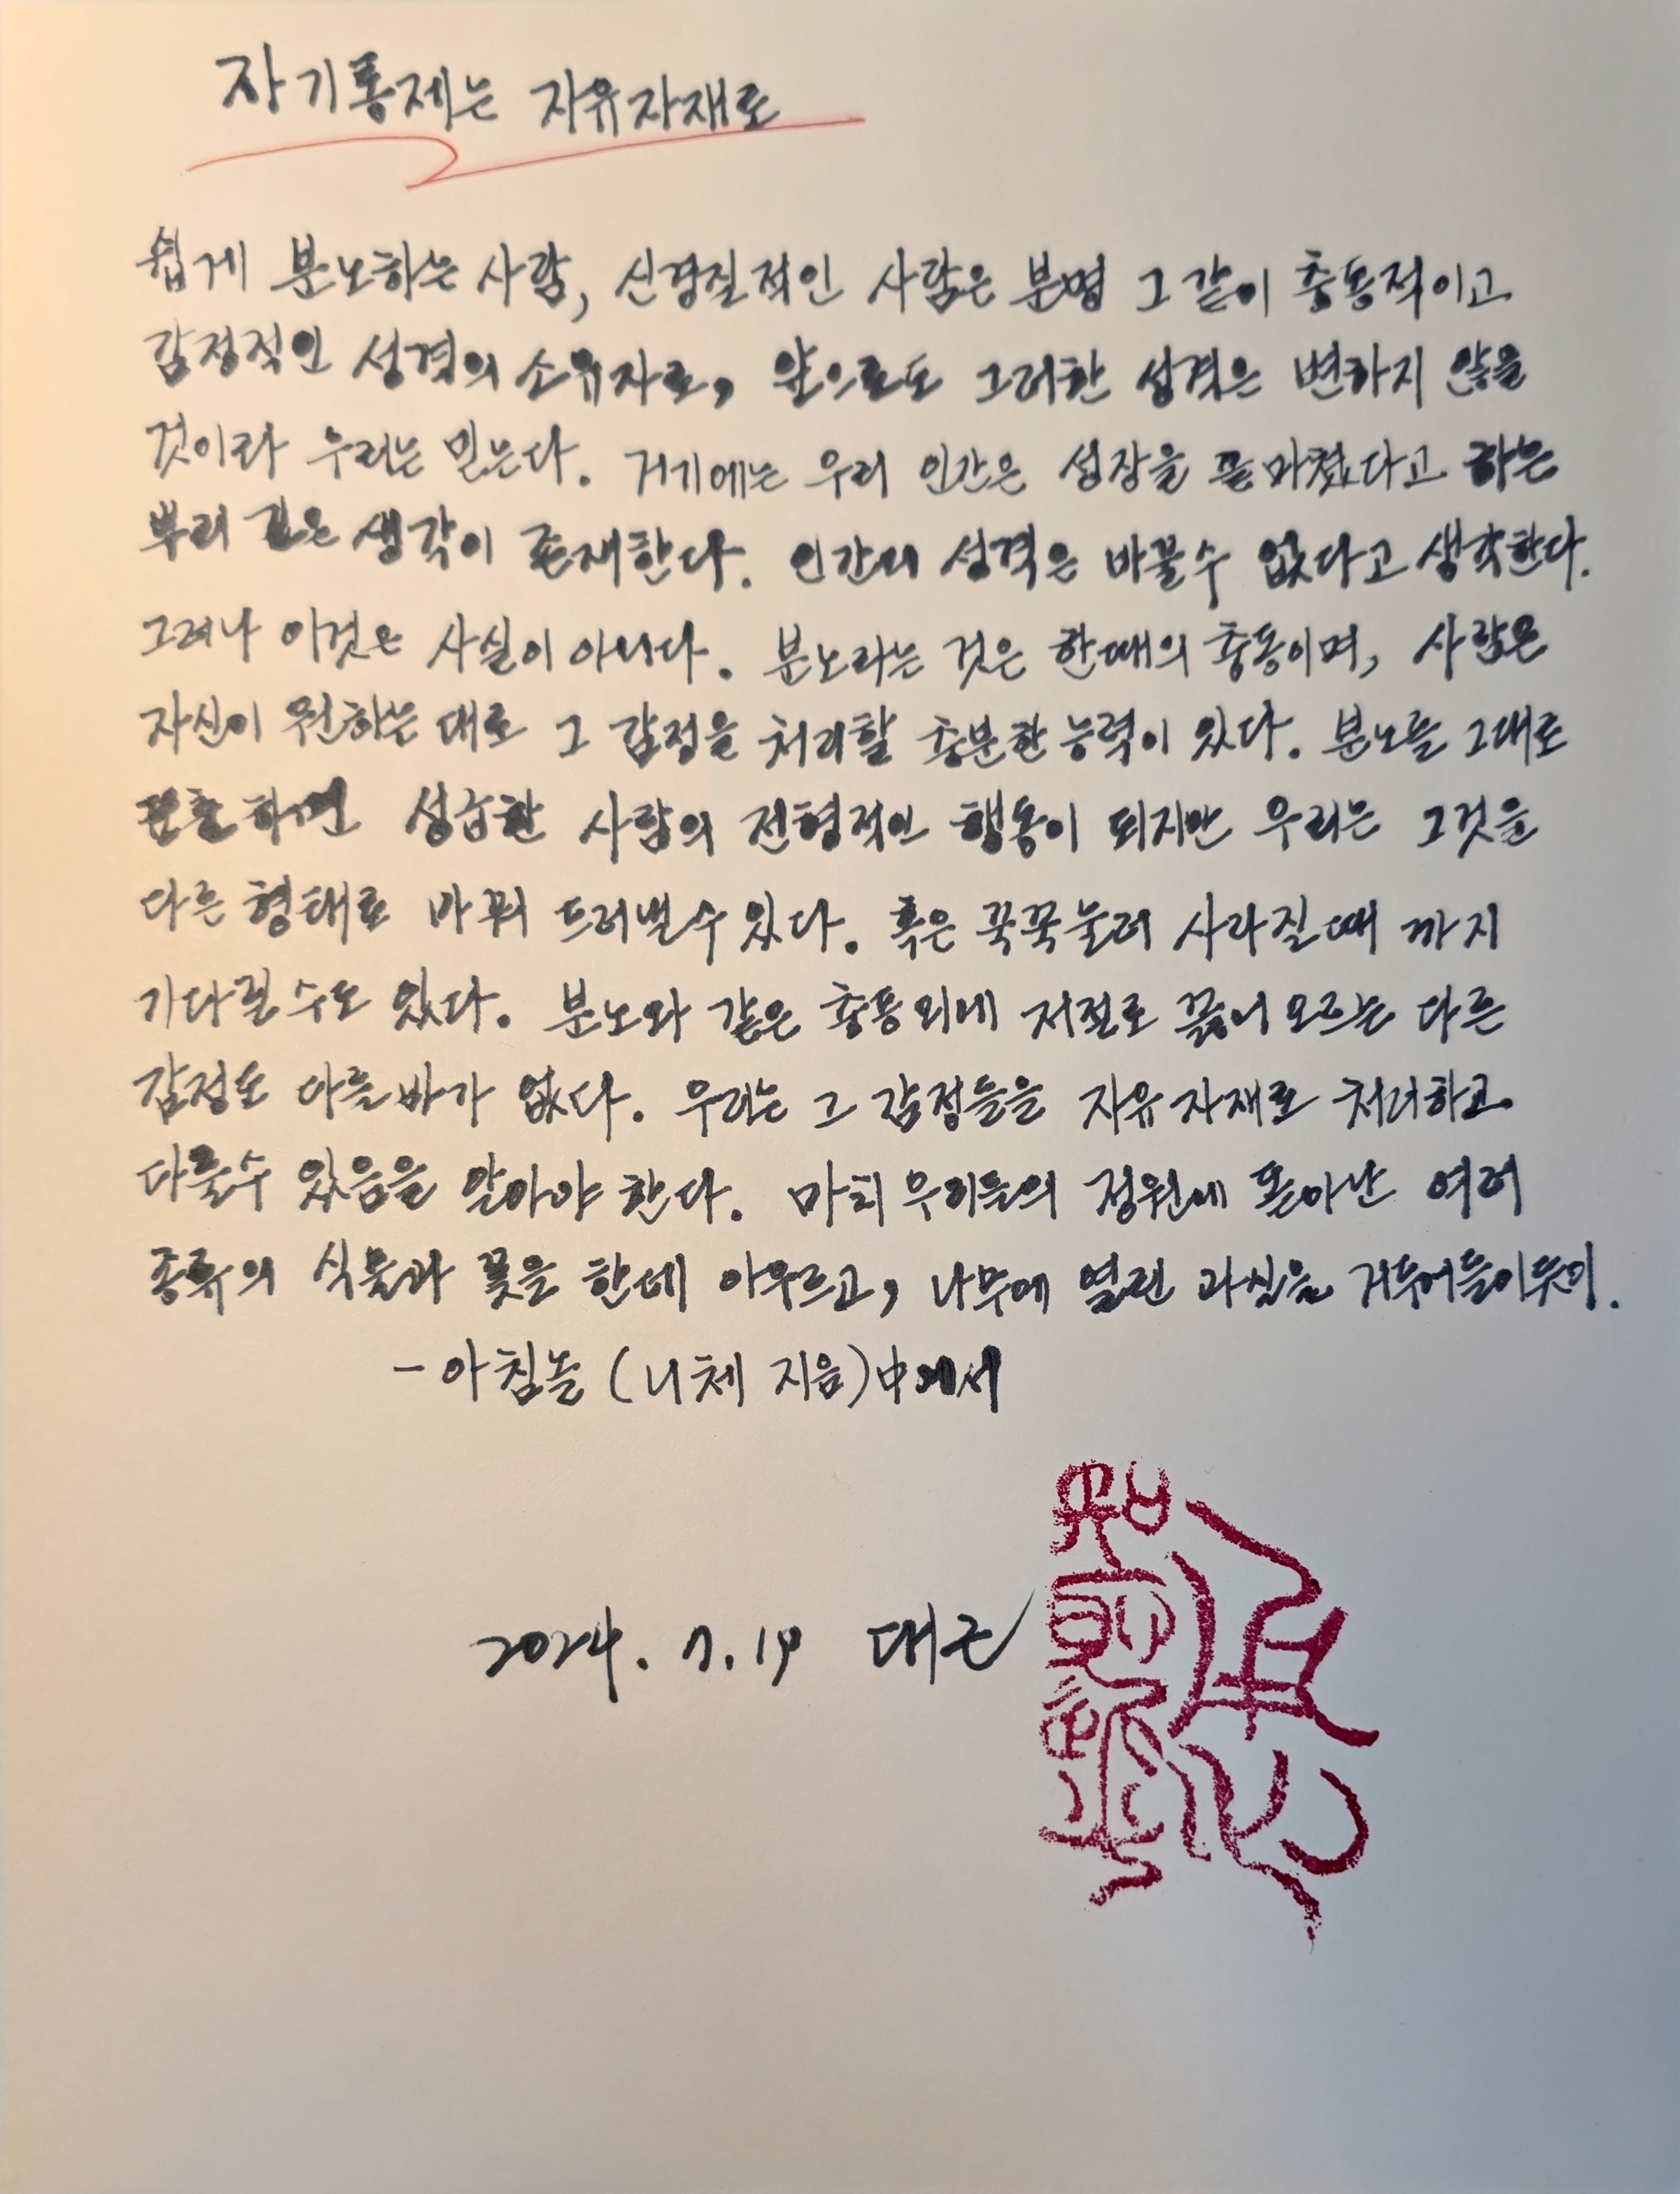 자기통제는 자유자재로
쉽게 분노하는 사람, 신경질적인 사람은 분명 그 같이 충동적이고
감정적인 성격의 소유자로, 앞으로도 그러한 성격은 변하지 않을
것이라 우리는 믿는다. 거기에는 우리 인간은 성장을 끝마쳤다고 하는
뿌리 깊은 생각이 존재한다. 인간의 성격은 바꿀수 없다고 생각한다.
그러나 이것은 사실이 아니다. 분노라는 것은 한때의 충동이며, 사람은
자신이 원하는 대로 그 감정을 처리할 충분한 능력이 있다. 분노를 그대로
표출하면 성급한 사람의 전형적인 행동이 되지만 우리는 그것을
다른 형태로 바꿔 드러낼수 있다. 혹은 꾹꾹눌러 사라질때 까지
기다릴 수도 있다. 분노와 같은 충동외에 저절로 끓어 오르는 다른
감정도 다를바가 없다. 우리는 그 감정들을 자유자재로 처리하고
다룰수 있음을 알아야 한다. 마치 우리들의 정원에 돋아난 여러
종류의 식물과 꽃을 한데 아우르고, 나무에 열린 과실을 거두어들이듯이.
- 아침놀 (니체 지음)中에서
2024. 7. 19 대근